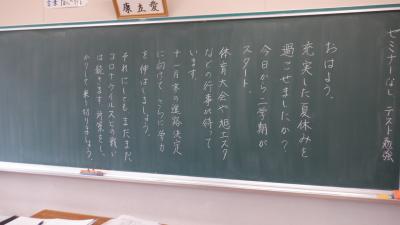 ゼミナーなし テスト勉強
おはよう、
充実した夏休みを
過ごせましたか?
今日から二学期が
スタート。
体育大会や旭工スタ
などの行事が待って
います。
十一月末の進路決定
に向けて、さらに学力
を伸ばしましょう。
それにしてもまだまだ、
コロナウイルスとの戦い
は続きます。対策をし、